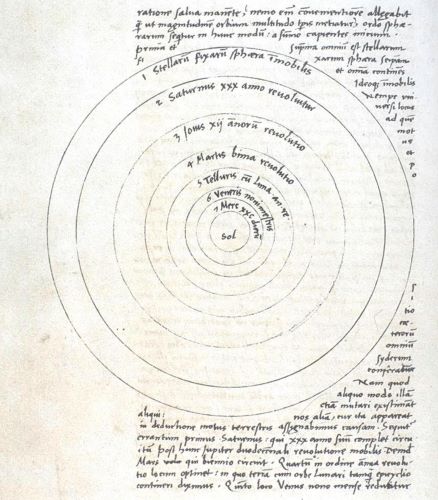 ratione salva manente, nemo em̄ convenientiore allegabit
q̄ ut magnitudinem orbium multitudo tp̄is metiatur, ordo sphæ-
rarum sequitur in hunc modū: a sum̄o capientes initium.
prima et suprema omniū est stellarum
fixarum sphæra seipsam
et omnia continēs
Ideoq; imobilis
nempe uni-
versi locus
ad quē
mot
us
et
po
1 Stellarū fixarū sphæra imobilis
2 Saturnus xxx anno revolvitur
3 Jovis xij annorū revolutio
4 Martis bima revolutio
5 Telluris cū luna an. re.
6 Veneris nonimestris
7 Merc xxc dierū
Sol
si
tio
cæ-
terorū
omniū
syderum
conferatur
Nam quod
aliquo modo illā
etiā mutari existimāt
aliqui: nos aliā, cur ita appareat
in deductione motus terrestris assignabimus causam. Sequitur
errantium primus Saturnus: qui xxx anno suū complet circu
itū post hunc Jupiter duodecennali revolutione mobilis Deinde
Mars qui biennio circuit. Quartū in ordine anua revolu-
tio locum optinet: in quo terrā cum orbe Lunari tanq̄ epicyclio
contineri diximus. Quinto loco Venus nono mense reducitur